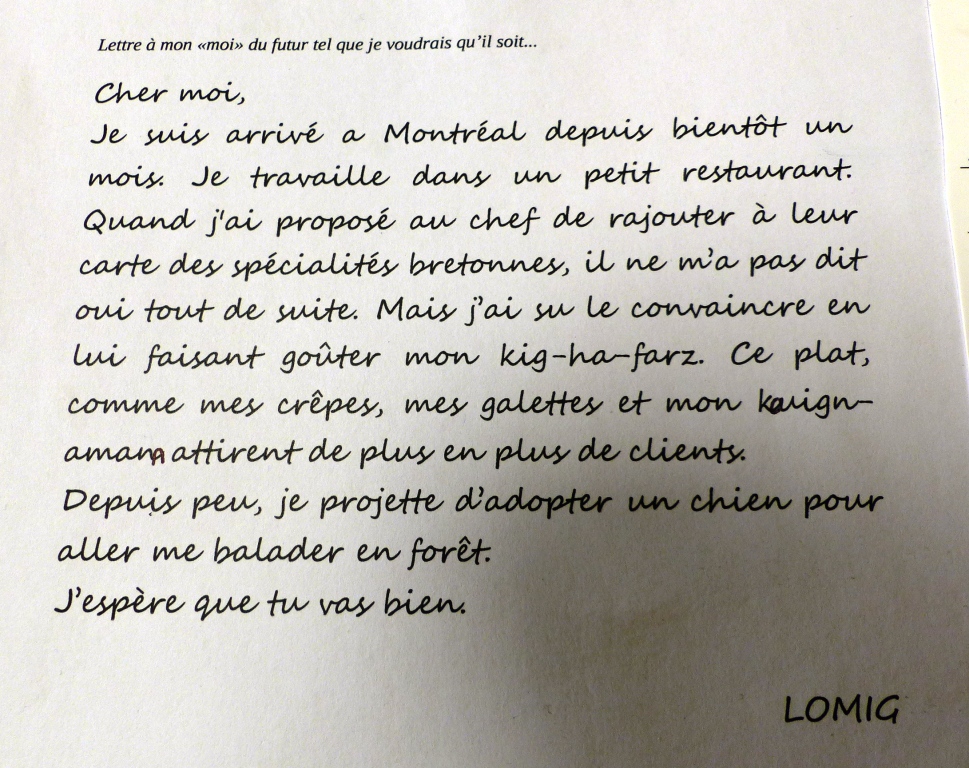 Lettre à mon «moi» du futur tel que je voudrais qu'il soit...
Cher moi,
Je suis arrivé a Montréal depuis bientôt un
mois. Je travaille dans un petit restaurant.
Quand j'ai proposé au chef de rajouter à leur
carte des spécialités bretonnes, il ne m'a pas dit
oui tout de suite. Mais j'ai su le convaincre en
lui faisant goûter mon kig-ha-farz. Ce plat,
comme mes crêpes, mes galettes et mon kouign-
amann attirent de plus en plus de clients.
Depuis peu, je projette d'adopter un chien pour
aller me balader en forêt.
J'espère que tu vas bien.
LOMIG